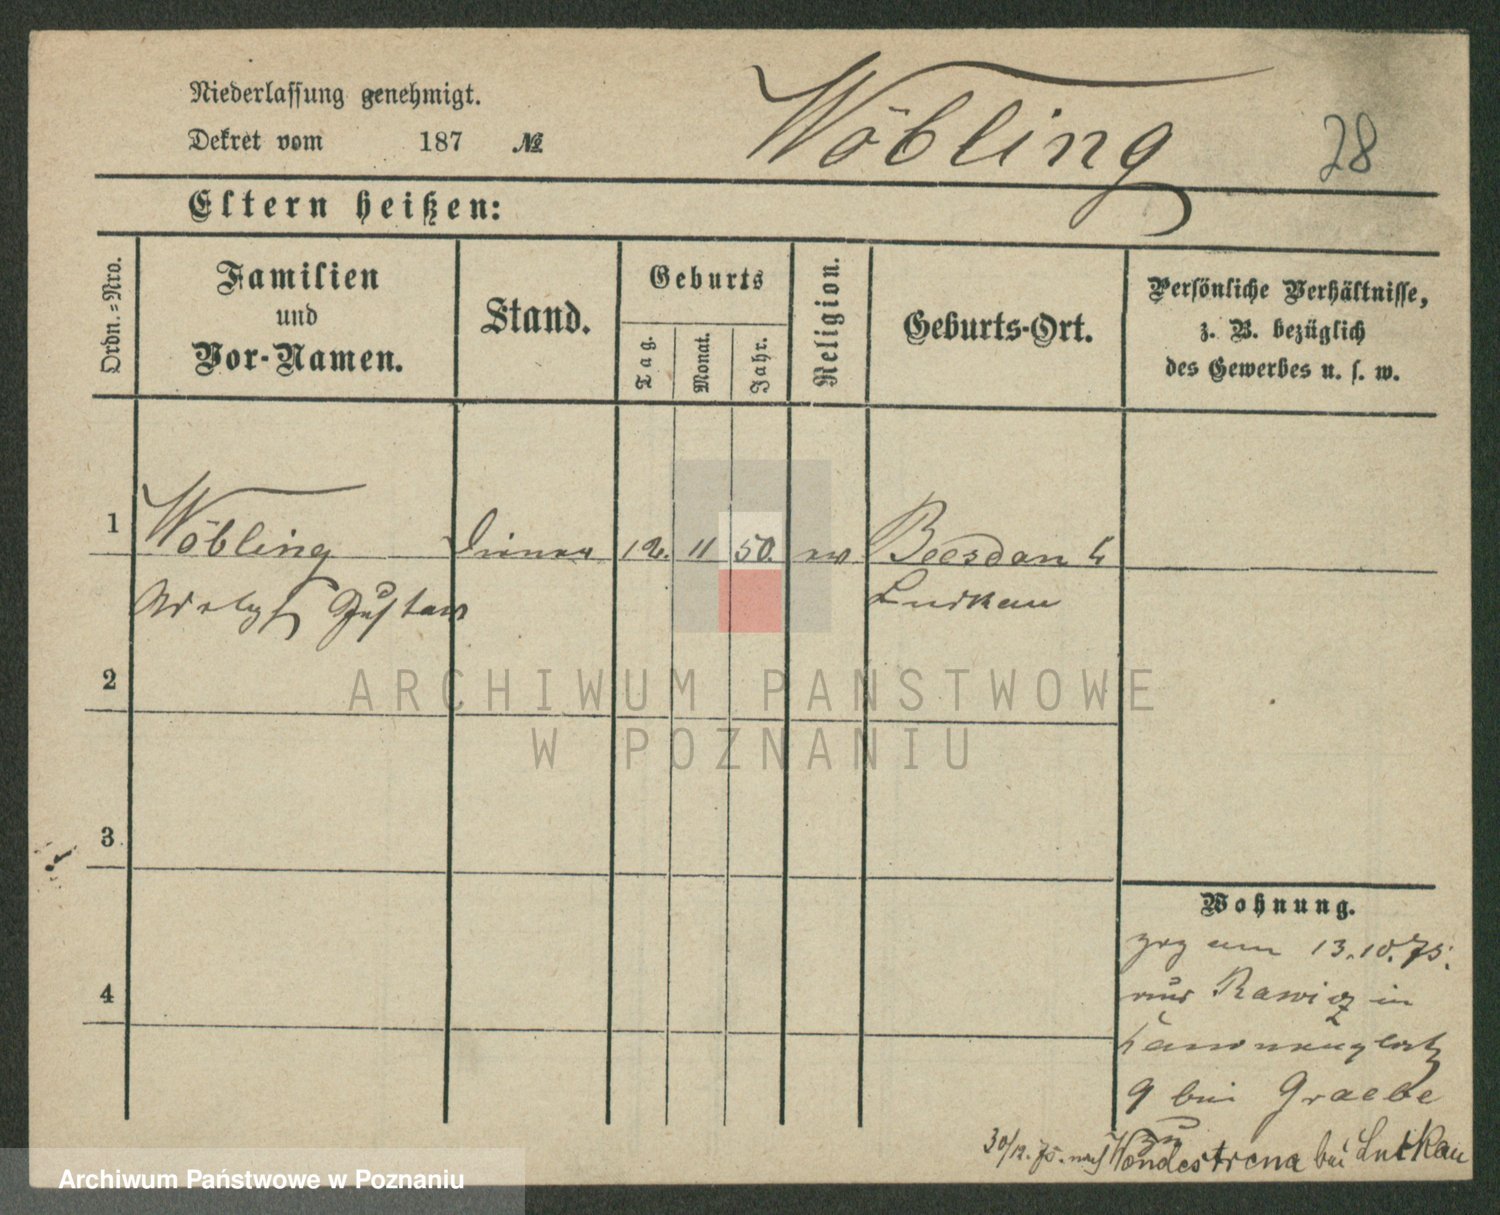 Niederlassung genehmigt.
Dekret vom 187 №
Wöbling
28
Eltern heißen:
Ordn.=Nro.
Familien
und
Vor-Namen.
Stand.
Geburts
Tag.
Monat.
Jahr.
Religion.
Geburts-Ort.
Persönliche Verhältnisse,
z. B. bezüglich
des Gewerbes u. s. w.
1
Wöbling
Diener
12.
11
50.
Beesdan
Adolph Gustav
Luckau
2
3
4
Wohnung.
zog am 13.10.75.
aus Rawicz in
Kanonenplatz
9 bei Graebe
zu
30/12.75. nach bei Luckau
ARCHIWUM PAŃSTWOWE
W POZNANIU
Archiwum Państwowe w Poznaniu